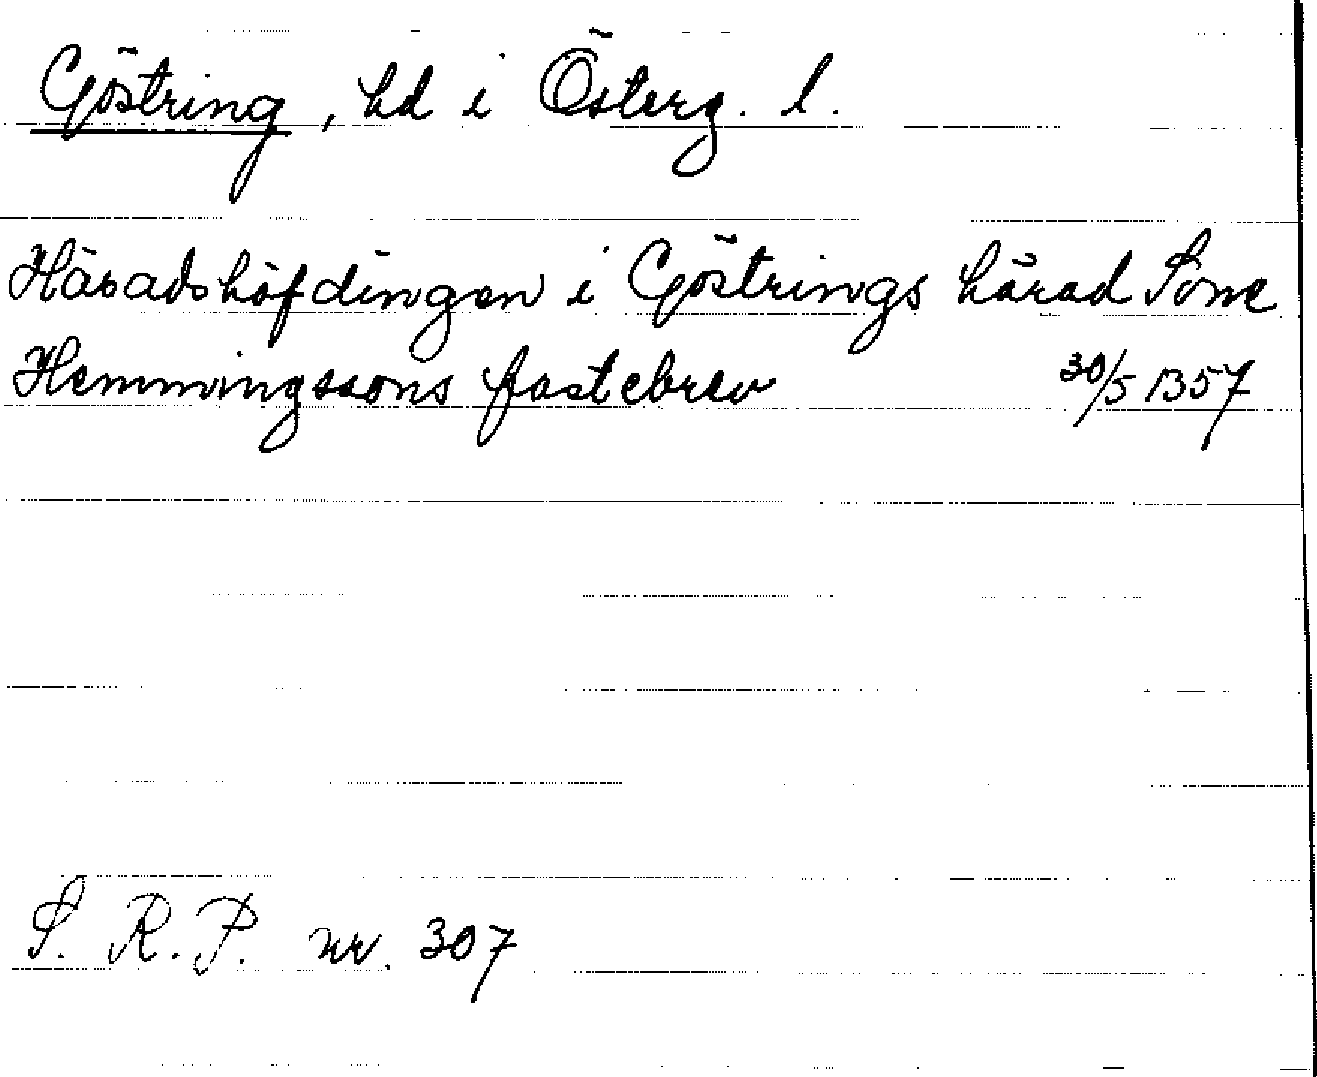 Göstring, hd i Österg. l.
Häradshöfdingen i Göstrings härad Sone
Hemmingssons fastebrev 30/5 1357
S. R. P. nr. 307